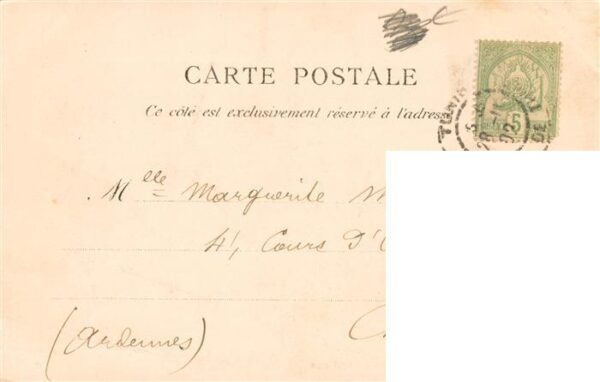 CARTE POSTALE
Ce côté est exclusivement réservé à l'adres
TUNIS
5
Mlle Marguerite
4, Cours D'
(Ardennes)